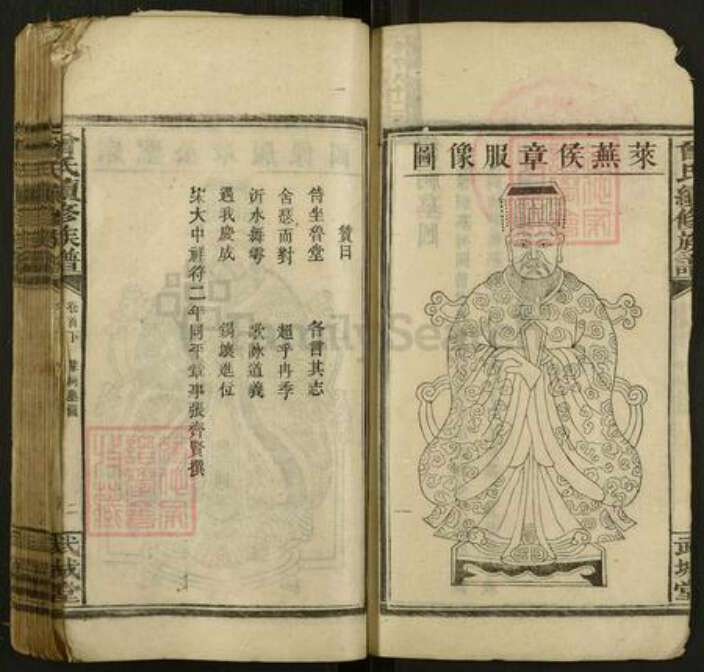 萊蕪侯章服像圖
武城堂
贊曰
侍坐魯堂 各言其志
舍瑟而對 超乎冉季
沂水舞雩 歌詠道義
遇我慶成 錫壤進位
宋大中祥符二年同平章事張齊賢撰
曾氏續修族譜
卷首下
二
武城堂
FamilySearch